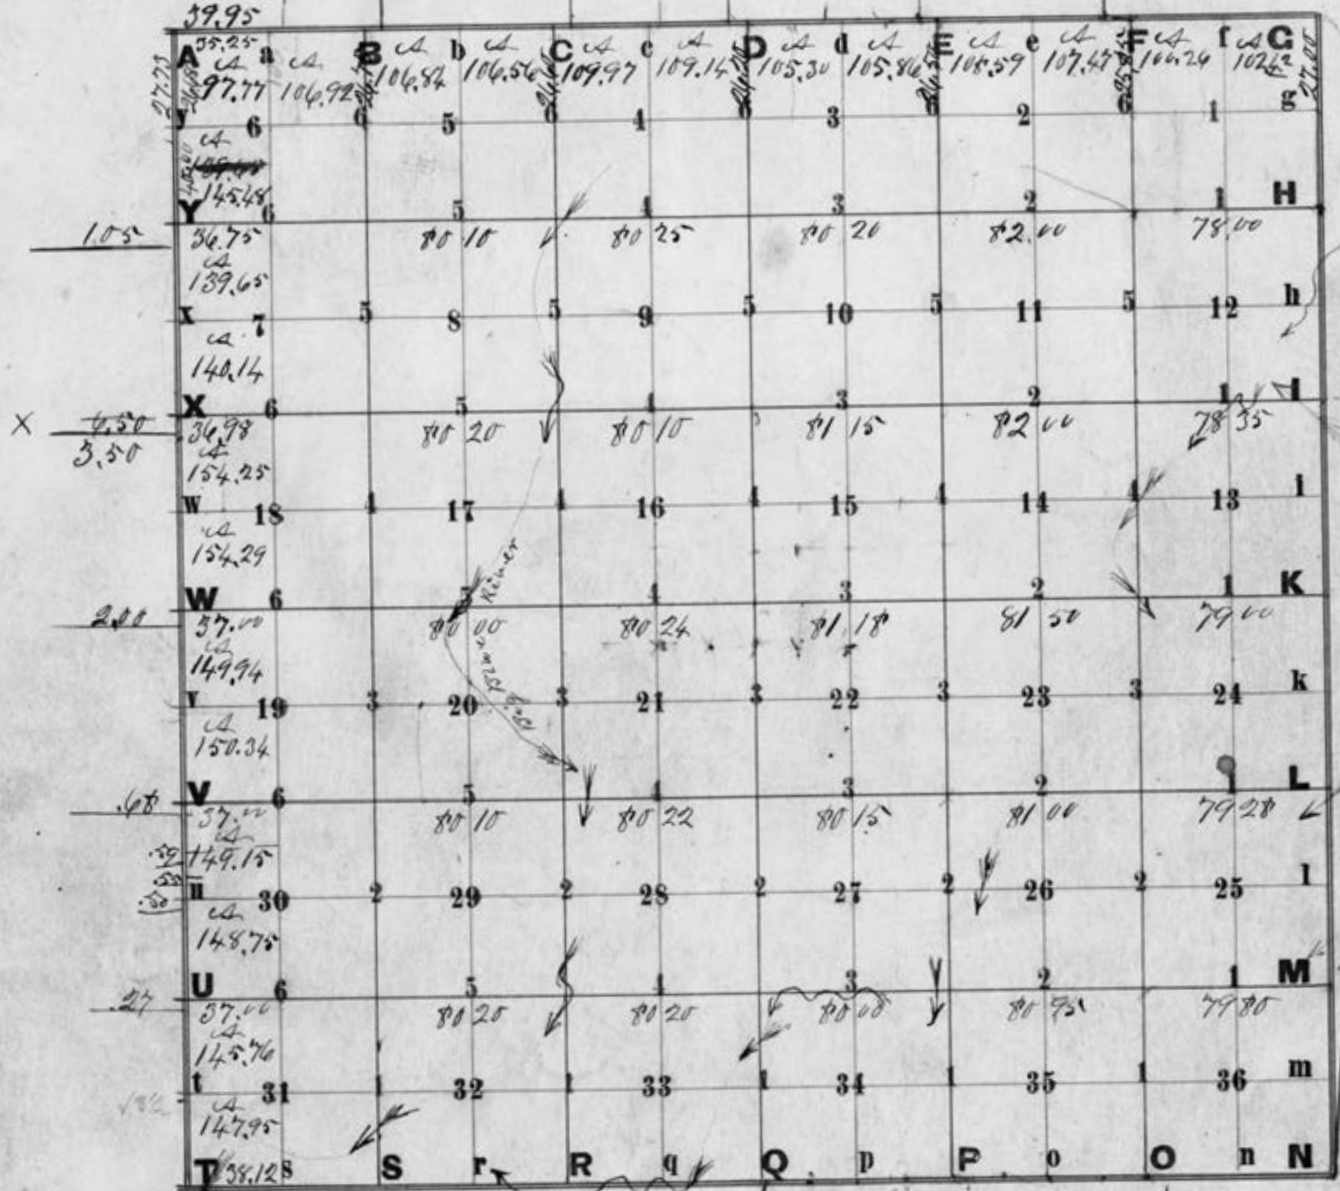 39.95
35.25
A a B b C c D d E e F f G
A A A A A A A A A A A A
97.77 106.92 106.84 106.56 109.97 109.14 105.30 105.86 108.59 107.47 106.26
27.73 27.00
y 6 6 5 6 4 6 3 6 2 6 1 g
A
40.00
145.48
Y 6 5 4 3 2 1 H
1.05 36.75 80 10 80 25 80 20 82.00 78.00
A
139.65
x 7 5 8 5 9 5 10 5 11 5 12 h
A
140.14
X 6 5 4 3 2 1 I
X 4.50 36.98 80 20 80 10 81 15 82 00 78 35
3.50 A
154.25
W 18 4 17 4 16 4 15 4 14 4 13 i
A
154.29
River
W 6 5 4 3 2 1 K
2.00 37.00 80 00 80 24 81.18 81 50 79 00
A
149.94
Big
V 19 3 20 3 21 3 22 3 23 3 24 k
A
150.34
V 6 5 4 3 2 1 L
.68 37.00 80 10 80 22 80 15 81 00 79 28
A
.59 149.15
u 30 2 29 2 28 2 27 2 26 2 25 l
A
148.75
U 6 5 4 3 2 1 M
.27 37.00 80 20 80 20 80 00 80 95 79 80
A
145.76
t 31 1 32 1 33 1 34 1 35 1 36 m
A
147.95
T 38.12 s S r R q Q p P o O n N